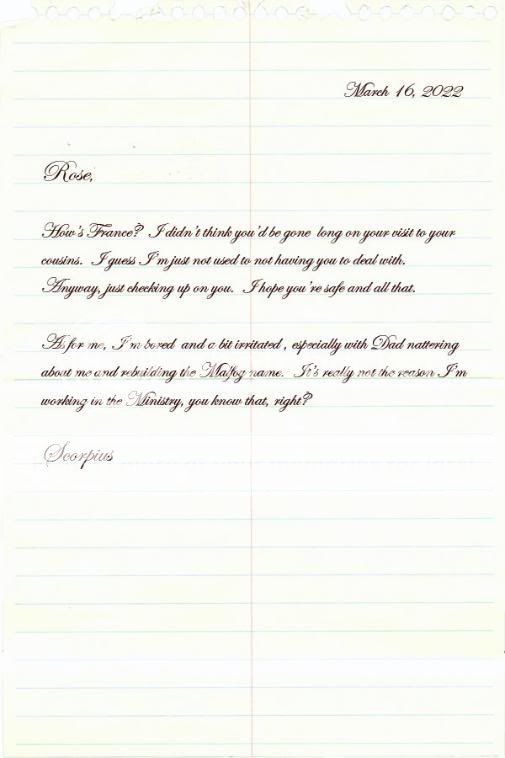 March 16, 2022
Rose,
How's France? I didn't think you'd be gone long on your visit to your
cousins. I guess I'm just not used to not having you to deal with.
Anyway, just checking up on you. I hope you're safe and all that.
As for me, I'm bored and a bit irritated, especially with Dad nattering
about me and rebuilding the Malfoy name. It's really not the reason I'm
working in the Ministry, you know that, right?
Scorpius